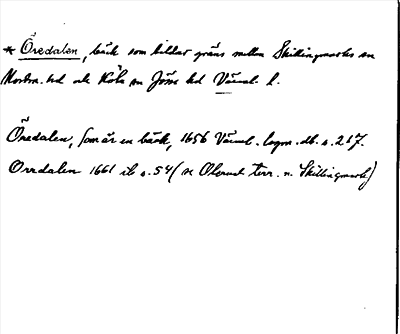 * Öredalen, bäck som bildar gräns mellan Skillingmarks sn
Nordm. hd och Köla sn Jösse hd Värml. l.
Öredalen, som är en bäck, 1656 Värml. lagm. db. s. 217.
Orrdalen 1661 ib s. 54 (
terr. n. Skillingmark)